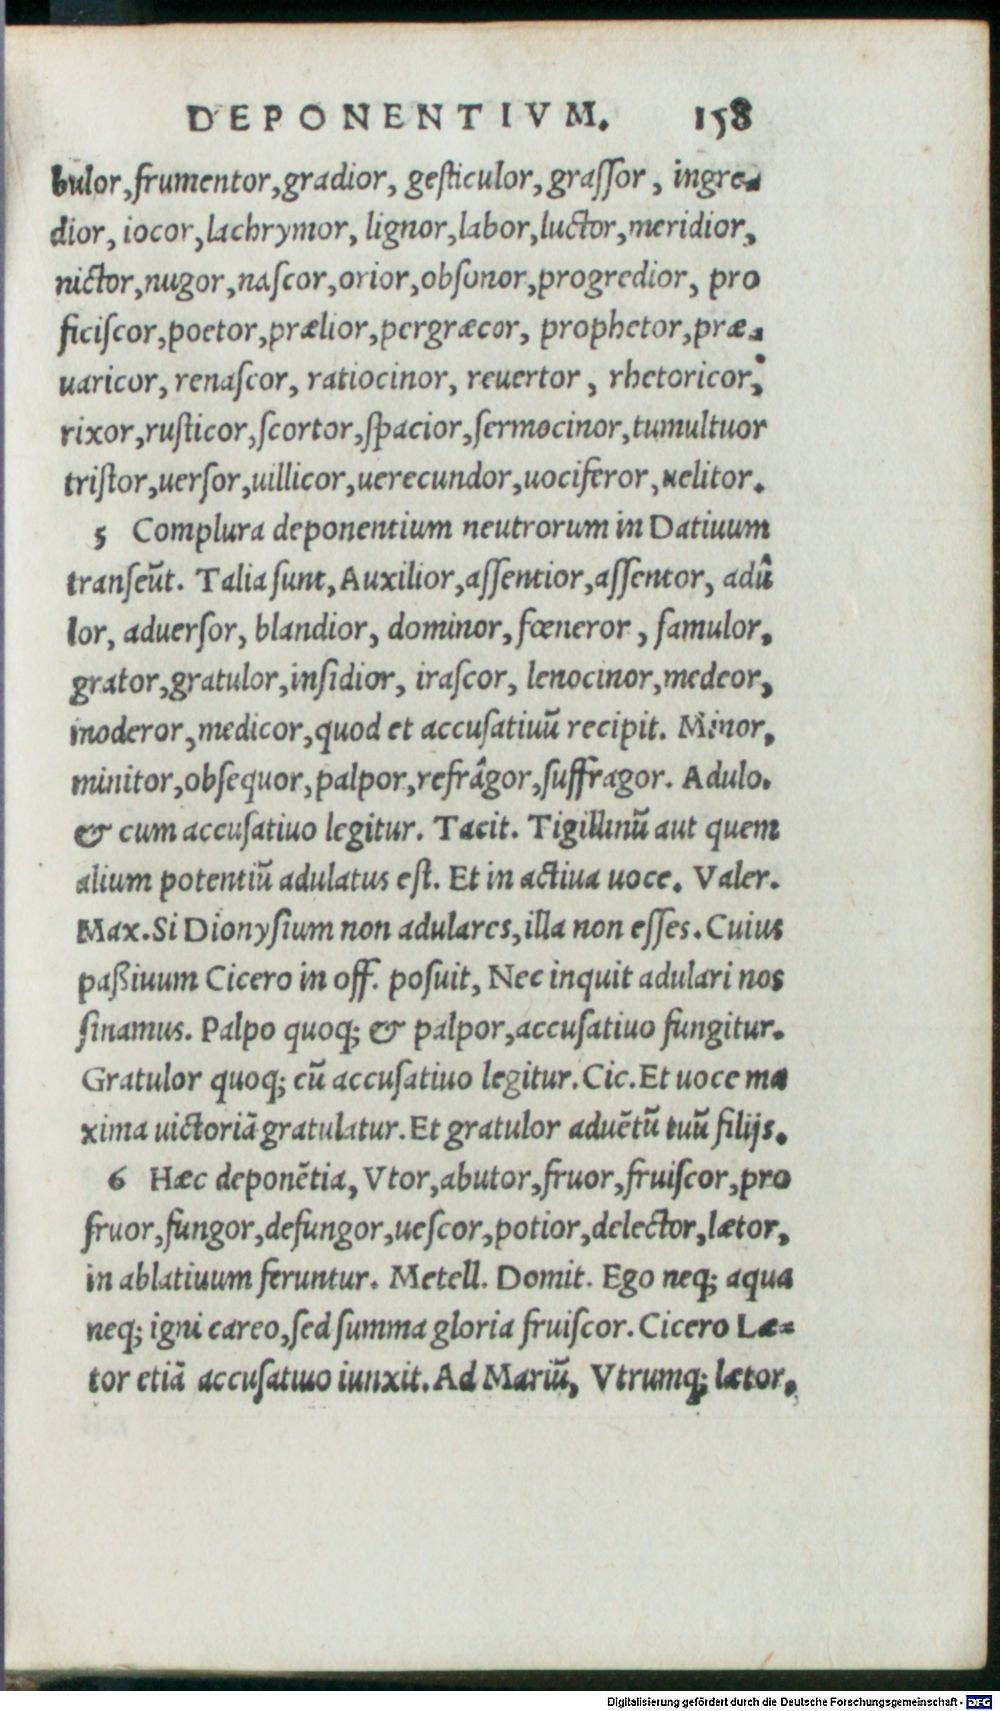 DEPONENTIVM. 158
bulor,frumentor,gradior, geſticulor,graſſor, ingre-
dior, iocor,lachrymor, lignor,labor,luctor,meridior,
nictor,nugor,naſcor,orior,obſonor,progredior, pro
ficiſcor,poetor,prælior,pergræcor, prophetor,præ-
uaricor, renaſcor, ratiocinor, reuertor, rhetoricor,
rixor,ruſticor,ſcortor,ſpacior,ſermocinor,tumultuor
triſtor,uerſor,uillicor,uerecundor,uociferor,uelitor.
5 Complura deponentium neutrorum in Datiuum
tranſeūt. Talia ſunt, Auxilior,aſſentior,aſſentor, adû
lor, aduerſor, blandior, dominor, fœneror, famulor,
grator,gratulor,inſidior, iraſcor, lenocinor,medeor,
moderor,medicor,quod et accuſatiuū recipit. Minor,
minitor,obſequor,palpor,refrâgor,ſuffragor. Adulo.
& cum accuſatiuo legitur. Tacit. Tigillinū aut quem
alium potentiū adulatus eſt. Et in actiua uoce. Valer.
Max. Si Dionyſium non adulares,illa non eſſes. Cuius
paßiuum Cicero in off. poſuit, Nec inquit adulari nos
ſinamus. Palpo quoq; & palpor,accuſatiuo fungitur.
Gratulor quoq; cū accuſatiuo legitur. Cic. Et uoce ma
xima uictoriā gratulatur. Et gratulor aduētū tuū filijs.
6 Hæc deponētia, Vtor,abutor,fruor,fruiſcor,pro
fruor,fungor,defungor,ueſcor,potior,delector,lætor,
in ablatiuum feruntur. Metell. Domit. Ego neq; aqua
neq; igni careo,ſed ſumma gloria fruiſcor. Cicero Læ-
tor etiā accuſatiuo iunxit. Ad Mariū, Vtrumq; lætor,
Digitalisierung gefördert durch die Deutsche Forschungsgemeinschaft - DFG